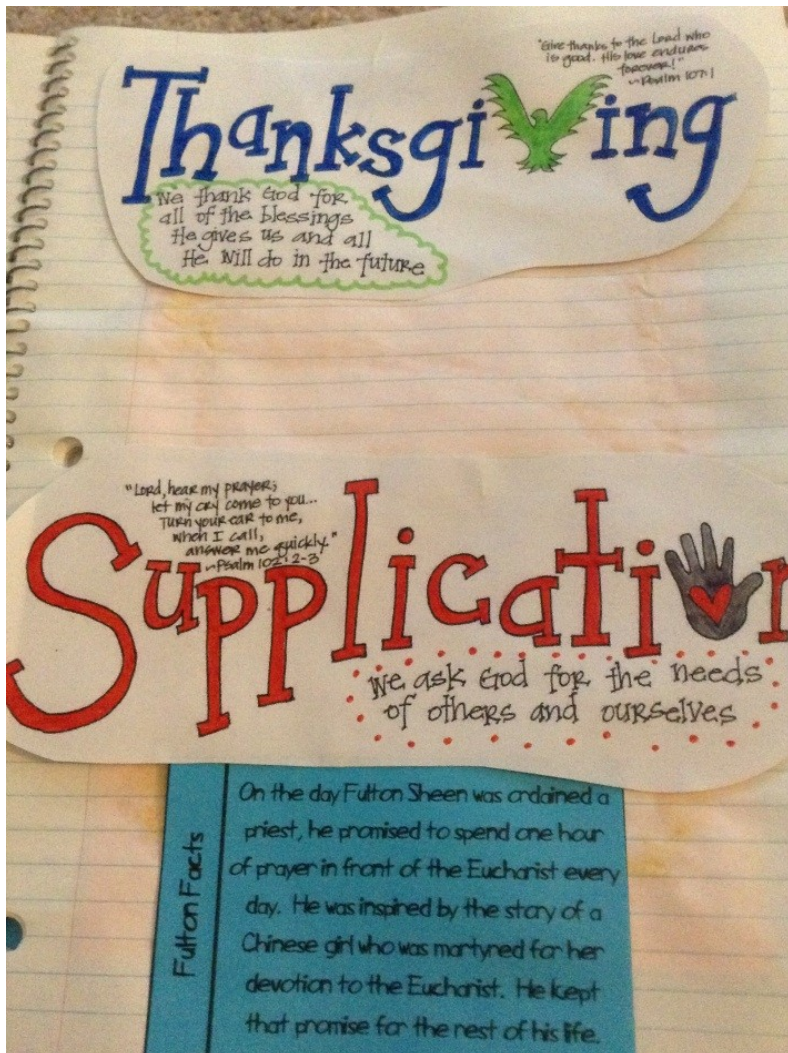 "Give thanks to the Lord who
is good. His love endures
forever!"
~Psalm 107:1
Thanksgiving
We thank God for
all of the blessings
He gives us and all
He will do in the future
"Lord, hear my prayer;
let my cry come to you...
Turn your ear to me,
when I call,
answer me quickly."
~Psalm 102:2-3
Supplication
We ask God for the needs
of others and ourselves
Fulton Facts
On the day Fulton Sheen was ordained a
priest, he promised to spend one hour
of prayer in front of the Eucharist every
day. He was inspired by the story of a
Chinese girl who was martyred for her
devotion to the Eucharist. He kept
that promise for the rest of his life.